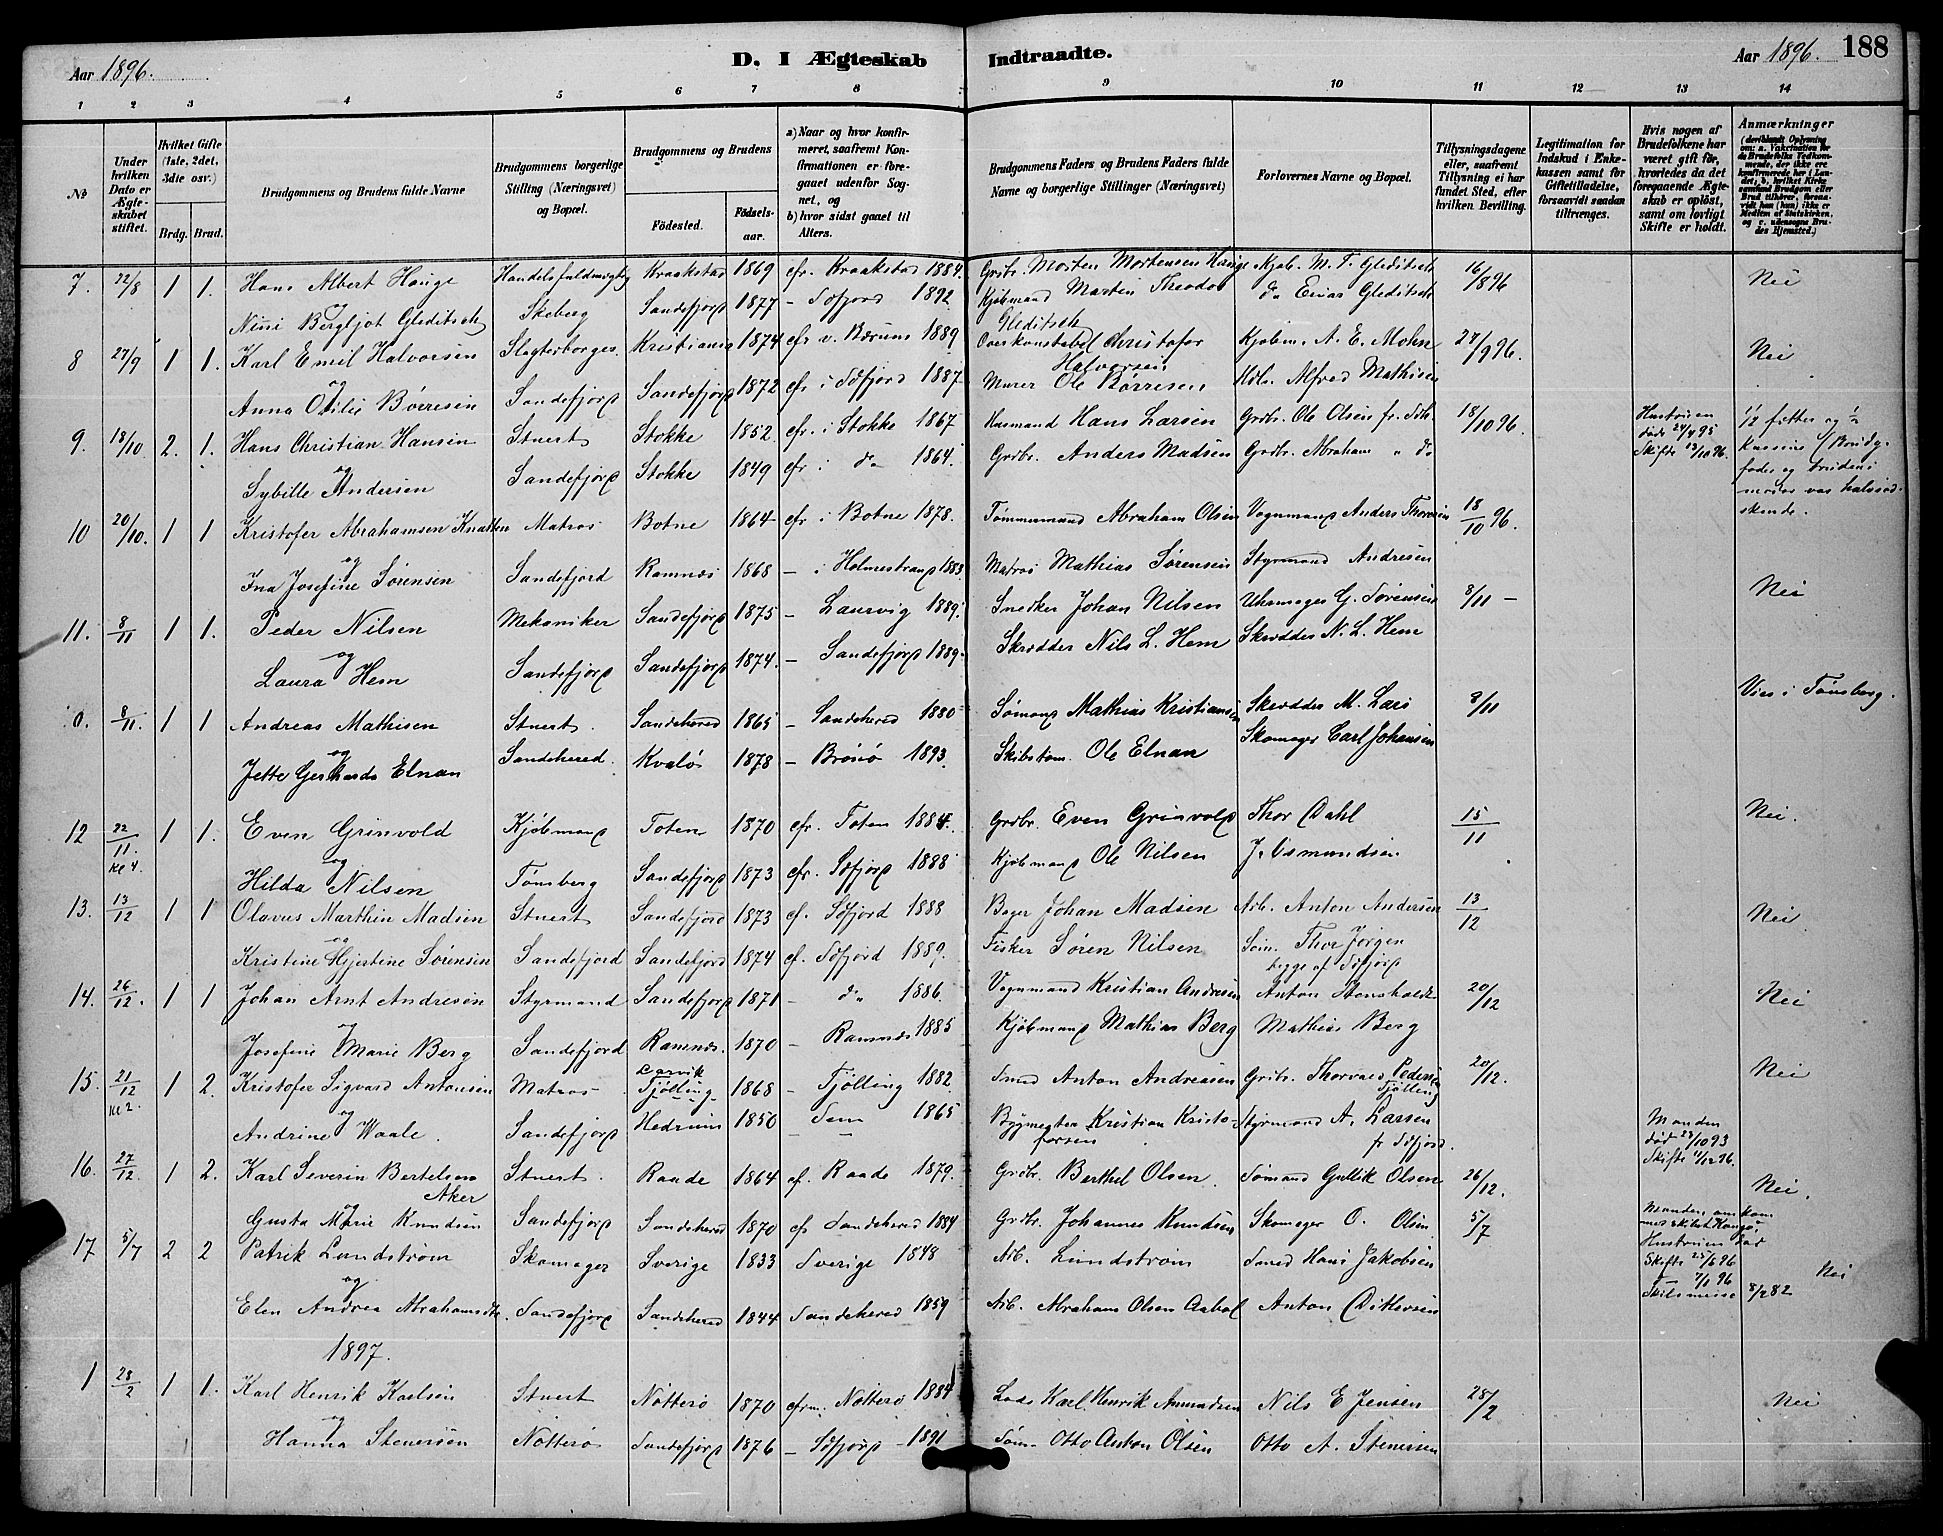 Aar 1896.
D. I Ægteskab Indtraadte.
Aar 1896. 188
1 2 3 4 5 6 7 8 9 10 11 12 13 14
No
Under hvilken Dato er Ægteskabet stiftet.
Hvilket Gifte (1ste, 2det, 3die osv.)
Brdg. Brud.
Brudgommens og Brudens fulde Navne
Brudgommens borgerlige Stilling (Næringsvei) og Bopæl.
Brudgommens og Brudens
Fødested. Fødselsaar.
a) Naar og hvor konfirmeret, saafremt Konfirmationen er foregaaet udenfor Sognet, og
b) hvor sidst gaaet til Alters.
Brudgommens Faders og Brudens Faders fulde Navne og borgerlige Stillinger (Næringsvei)
Forlovernes Navne og Bopæl.
Tillysningsdagene eller, saafremt Tillysning ei har fundet Sted, efter hvilken Bevilling.
Legitimation for Indskud i Enkekassen samt for Giftetilladelse, forsaavidt saadan tiltrænges.
Hvis nogen af Brudefolkene har været gift før, hvorledes da det foregaaende Ægteskab er opløst, samt om lovligt Skifte er holdt.
Anmærkninger
(deriblandt Oplysning om: a. Vakcination for de Brudefolks Vedkommende, der ikke ere konfirmerede her i Landet, b. hvilket Kirkesamfund Brudgom eller Brud tilhører, forsaavidt han (hun) ikke er Medlem af Statskirken, og c. udensogns Brudes Hjemsted.)
7. 22/8 1 1. Hans Albert Hauge Handelsfuldmægtig Kraakstad 1869 cfr. Kraakstad 1884. Grdbr. Morten Mortensen Hauge Kjøb. M. T. Gleditsch 16/8 96 Nei
og Ninni Bergljot Gleditsch Skeberg Sandefjord 1877 – Sdfjord 1892 Kjøbmand Martin Theodor Gleditsch do Einar Gleditsch
8 27/9 1 1. Karl Emil Halvorsen Slagterborger Kristiania 1874 cfr v. Bærum 1889 Overkonstabel Christofer Halvorsen Kjøbm. A. E. Mohn 27/9 96. Nei
og Anna Otilie Børresen Sandefjord Sandefjord 1872 cfr i Sdfjord 1887 Murer Ole Børresen Alfred Mathisen
9. 18/10 2. 1. Hans Christian Hansen Stuert Stokke 1852. cfr. i Stokke 1867 Husmand Hans Larsen Grdbr. Ole Olsen fr. Sdh. 18/10 96. Hustruen døde 24/4 95 Skifte 13/10 96. 1/2 fætter og 1/2 kusine (Brudg. fader og brudens moder var halvsødskende.
og Sybille Andersen Sandefjord Stokke 1849 cfr i do 1864. Grdbr. Anders Madsen Grdbr. Abraham " do
10 20/10. 1 1. Kristofer Abrahamsen Knatten Matros Botne 1864 cfr i Botne 1878. Tømmermand Abraham Olsen Vognmand Anders Thoresen 18/10 96.
og Ina Josefine Sørensen Sandefjord Ramnæs 1868 – i Holmestrand 1883 Matros Mathias Sørensen Styrmand Andresen
11. 8/11 1 1. Peder Nilsen Mekaniker Sandefjord 1875 – Laurvig 1889. Snedker Johan Nilsen Uhrmager G. Sørensen 8/11 – Nei
og Laura Hem Sandefjord Sandefjord 1874. – Sandefjord 1889. Skrædder Nils L. Hem Skrædder N. L. Hem
0. 8/11. 1 1 Andreas Mathisen Stuert. Sandehered 1865 – Sandehered 1880 Sømand Mathias Kristiansen Skrædder M. Lars 8/11 Vies i Tønsberg.
og Jette Gerharda Elnan Sandehered. Kvalø 1878 – Brøsø 1893. Skibstøm. Ole Elnan Skomager Carl Johansen
12 22/11. Kl 4. 1 1. Even Grinvold Kjøbmand Toten 1870 cfr. Toten 1884. Grdbr. Even Grinvold Thor Dahl 15/11 Nei.
og Hilda Nilsen Tønsberg Sandefjord 1873 cfr. Sdfjord 1888 Kjøbmand Ole Nilsen J. Asmundsen
13. 13/12 1 1 Olavus Marthin Madsen Stuert Sandefjord 1873 cf. Sdfjord 1888 Bager Johan Madsen Arb. Anton Andersen 13/12 Nei
og Kristine Hjertine Sørensen Sandefjord Sandefjord 1874 cf. Sdfjord 1889. Fisker Søren Nilsen Søm. Thor Jørgen begge af Sdfjord
14. 26/12. 1 1 Johan Arnt Andresen Styrmand Sandefjord 1871 – do 1886. Vognmand Kristian Andresen Anton Stensholdt 20/12 Nei
og Josefine Marie Berg Sandefjord Ramnæs. 1870 – Ramnæs 1885 Kjøbmand Mathias Berg Mathias Berg
15. 21/12 Kl 2. 1 2. Kristofer Sigvard Antonsen Matros Larvik Tjølling 1868 – Tjølling 1882. Smed Anton Andreasen Grdbr. Thorvald Pedersen Tjølling 20/12. Nei
og Andrine Waale. Sandefjord Hedrum 1850 – Sem 1865 Bygmester Kristian Kristofersen Styrmand A. Larsen fr Sdfjord. Manden død 23/10 93 Skifte 4/12 96.
16. 27/12. 1 2. Karl Severin Bertelsen Aker Stuert. Raade 1864 cf. Raade 1879. Grdbr. Berthel Olsen. Sømand Gullik Olsen 26/12. Nei.
og Gusta Marie Knudsen Sandefjord Sandehered 1870 cfr Sandehered 1884 Grdbr. Johannes Knudsen Skomager O. Olsen 5/7 Manden omkom med skibet Kongo,
17 5/7 2 2 Patrik Lundstrøm Skomager Sverige 1833 Sverige 1848 Arb. Lundstrøm Smed Hans Jakobsen Hustruen død Skifte 25/6 96 7/1 96 Nei
og Elen Andrea Abrahamsdtr. Sandefjord Sandehered 1844 Sandehered 1859 Arb. Abraham Olsen Anton Ditlevsen Skilsmisse 8/2 82
1897.
1 28/2 1 1. Karl Henrik Karlsen Stuert Nøtterø 1870 cfrm. Nøtterø 1884 Lods Karl Henrik Amundsen Nils E Jensen 28/2 Nei
og Hanna Stenersen Nøtterø Sandefjord 1876 – Sdfjord 1891 Søm. Otto Anton Olsen Otto A. Stenersen